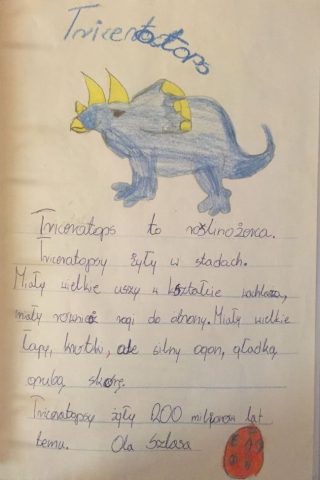 Triceratops
Triceratops to roślinożerca.
Triceratopsy żyły w stadach.
Miały wielkie uszy w kształcie wachlarza,
miały również rogi do obrony. Miały wielkie
łapy, krótki, ale silny ogon, gładką,
grubą skórę.
Triceratopsy żyły 200 milionów lat
temu. Ola